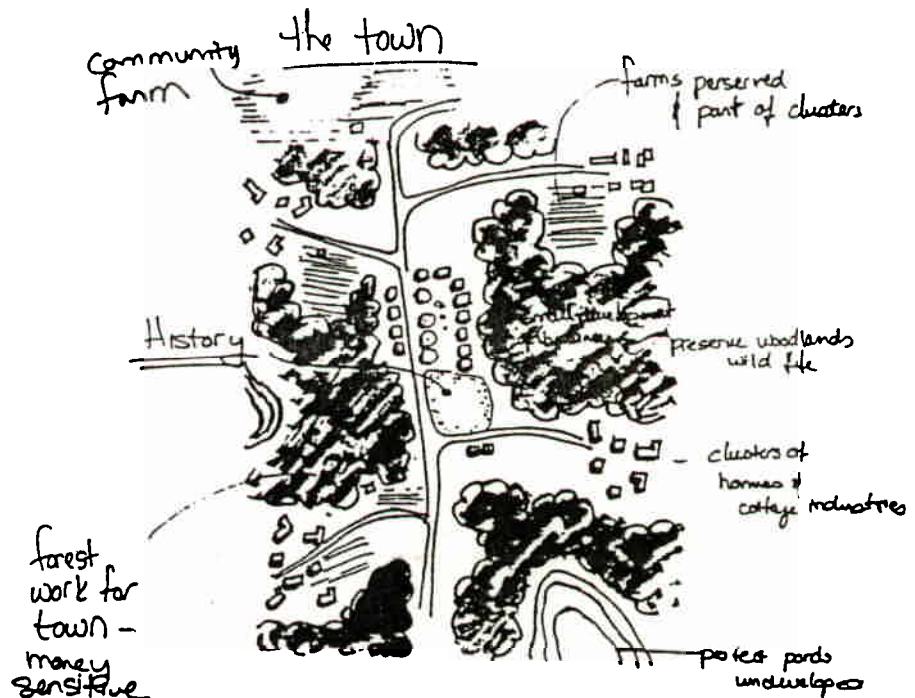 the town
community
farm
farms perserved
part of clusters
History
preserve woodlands
wild life
clusters of
homes &
cottage industries
forest
work for
town -
money
sensitive
protect ponds
undeveloped